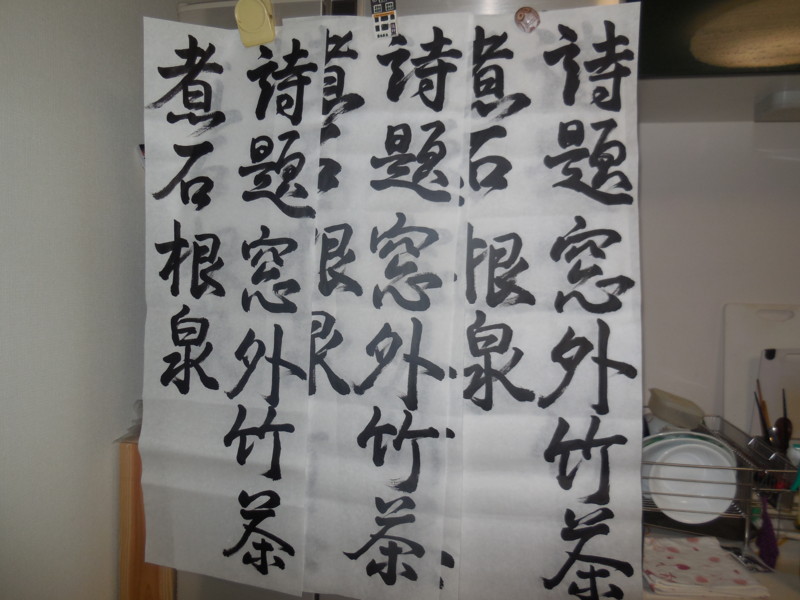 詩題窓外竹茶
煮石根泉
詩題窓外竹茶
煮石根
詩題窓外竹茶
煮石根泉